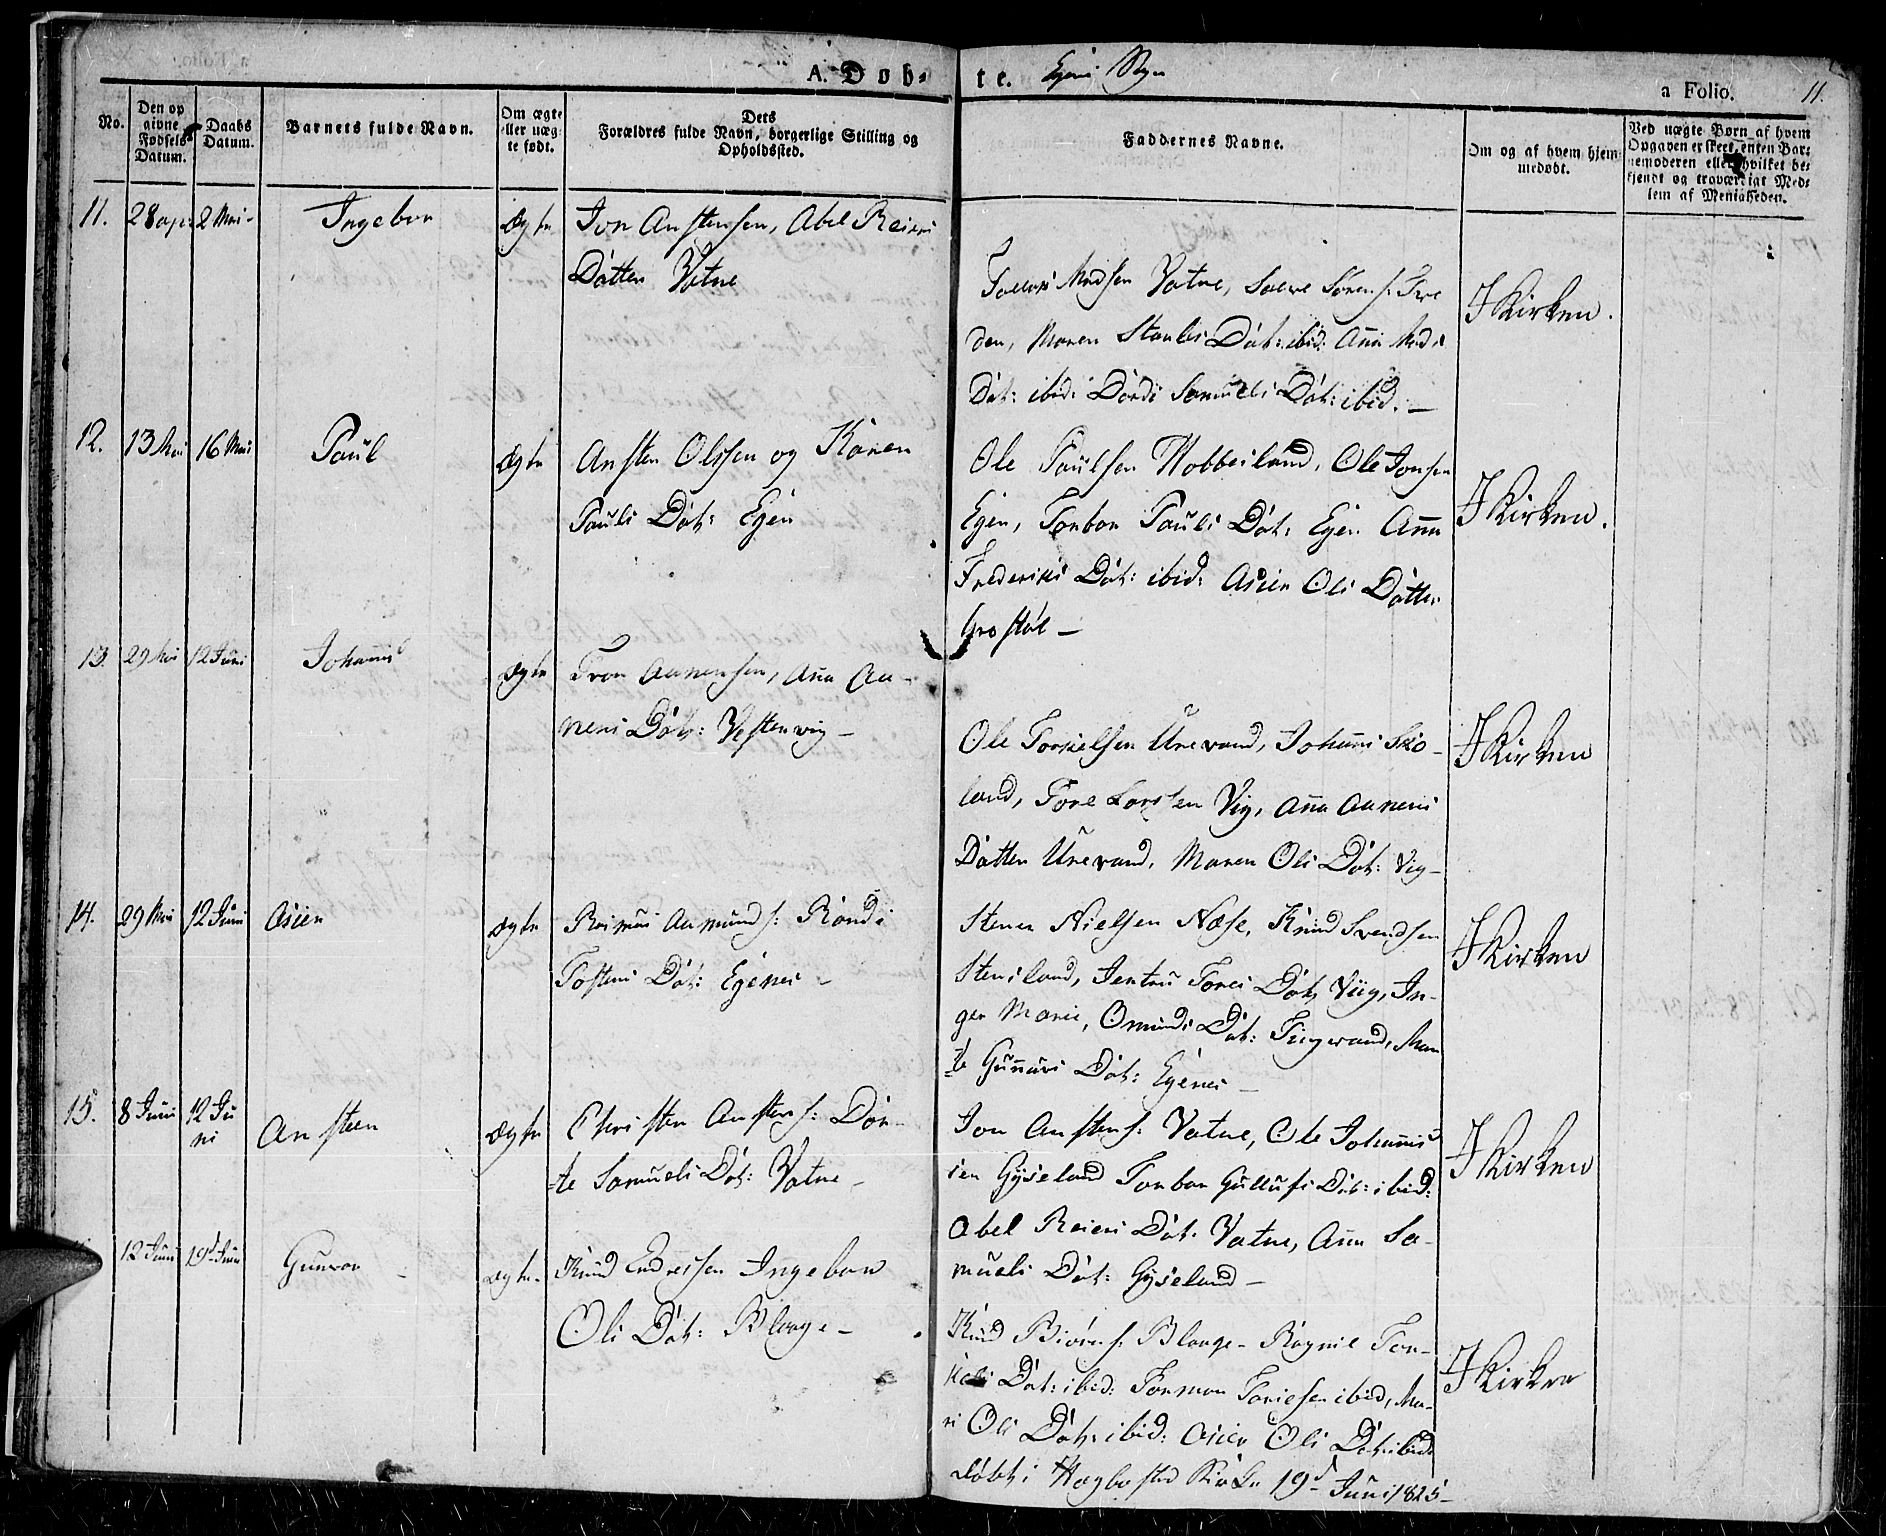 A. Døb-
te.
Egens Sogn
a Folio.
11.
No.
Den op
givne
Fødsels
Datum.
Daabs
Datum.
Barnets fulde Navn.
Om ægte
eller uæg-
te født.
Dets
Forældres fulde Navn, borgerlige Stilling og
Opholdssted.
Faddernes Navne.
Om og af hvem hjem-
medøbt.
Ved uægte Børn af hvem
Opgaven er skeet, enten Bar-
nemoderen eller hvilket be-
kjendt og troværdigt Med-
lem af Menigheden.
11.
28 apr:
2 Mai-
Ingebor
Ægte
Jon Anstensen, Abel Reiers
Datter Vatne
Madsen Vatne, Sørens:
den, Maren Dat: ibid: Ana Mads
Dat: ibid: Samuels Dat: ibid. -
I Kirken.
12.
13 Mai
16 Mai
Paul
Ægte
Ansten Olssen og Karen
Pauls Dat: Egen
Ole Paulsen Hobbesland, Ole Jonsen
Egen, Torbor Pauls Dat: Egen Anna
Frederiks Dat: ibid: Asier Ols Datter
I Kirken.
13.
29 Mai
12 Juni
Johannes
Ægte
Tron Aanensen, Ana Aa-
nens Dat: Vestervig -
Ole Torkielsen Urevand, Johannes Sko-
land, Tore Larsen Vig, Ana Aanens
Datter Urevand, Maren Ols Dat: Vig-
I Kirken
14.
29 Mai
12 Juni
Asier
Ægte
Rasmus Aamunds: Randi
Tostens Dat: Egenes -
Stener Nielsen Næse, Knud Svendsen
Stensland, Jentru Tores Dat: Viig, In-
ger Marie, Omunds Dat: Mar
te Gunnars Dat: Egenes -
I Kirken
15.
8 Juni
12 Ju
ni
Ansteen
Ægte
Christen Anstens: Dor-
te Samuels Dat: Vatne -
Jon Anstens: Vatne, Ole Johannes
sen Gyseland Torbor Gullufs Dat: ibid:
Abel Reiers Dat: Vatne, Ana Sa-
muels Dat: Gyseland -
I Kirken
12 Juni
19d Juni
Gunvor -
Ægte-
Knud Endresen Ingebor
Ols Dat: Blange -
Knud Biørns: Blange - Ragnil Tor-
kels Dat: ibid: Tormon Toriesen ibid, Ma-
ri Ols Dat: ibid: Asier Ols Dat: ibid:
døbt i Hægbosted Kirke 19d Juni 1825 -
I Kirken